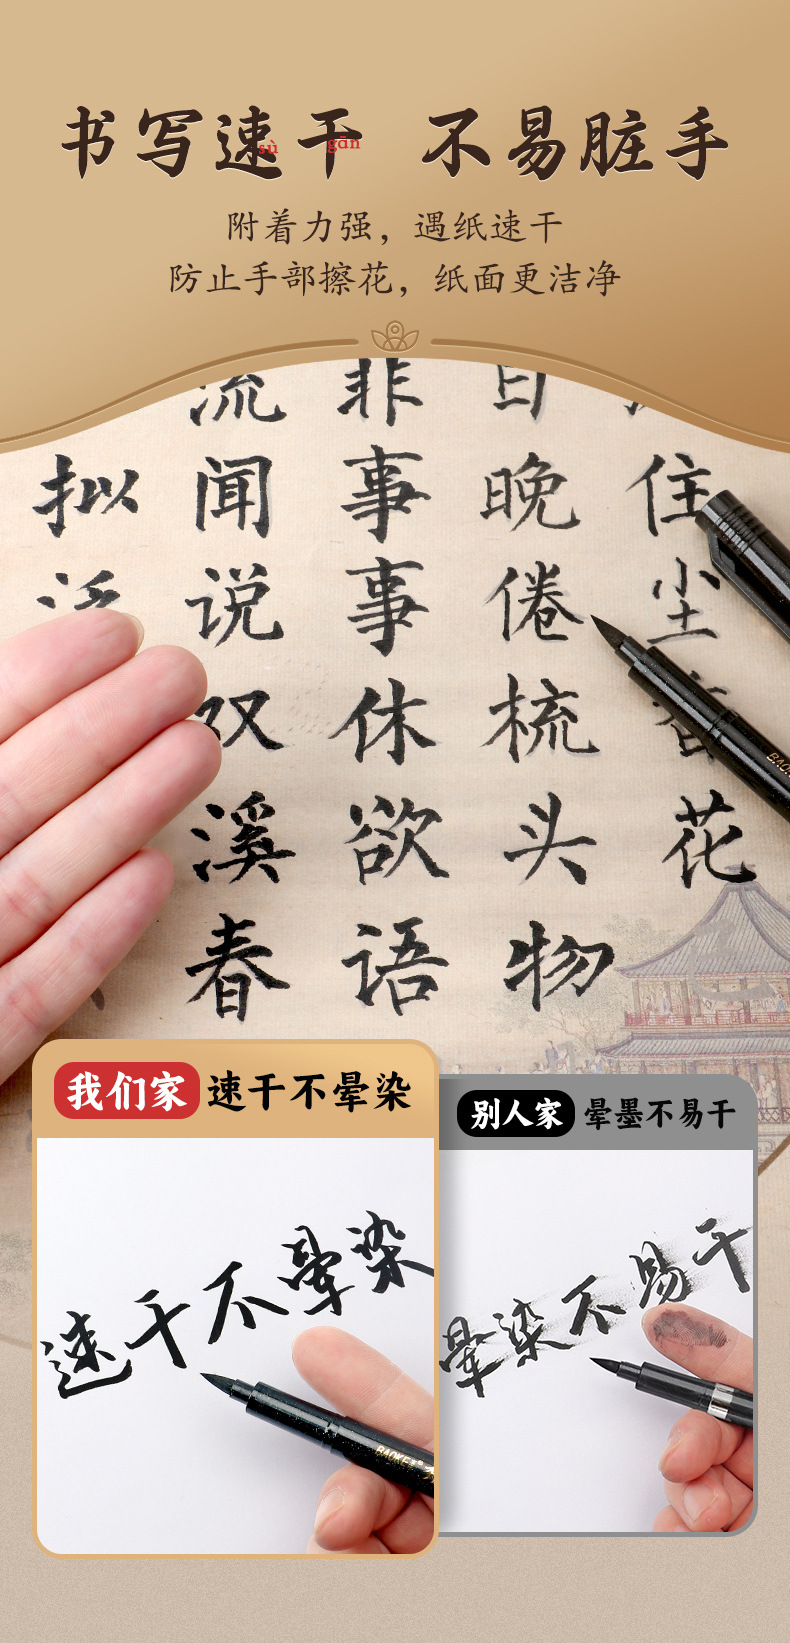 书写速干 不易脏手
sù gān
附着力强，遇纸速干
防止手部擦花，纸面更洁净
流 非 日
拟 闻 事 晚 住
泛 说 事 倦 尘
双 休 梳 香
溪 欲 头 花
春 语 物
我们家 速干不晕染
别人家 晕墨不易干
速干不晕染
晕染不易干
BAOKE